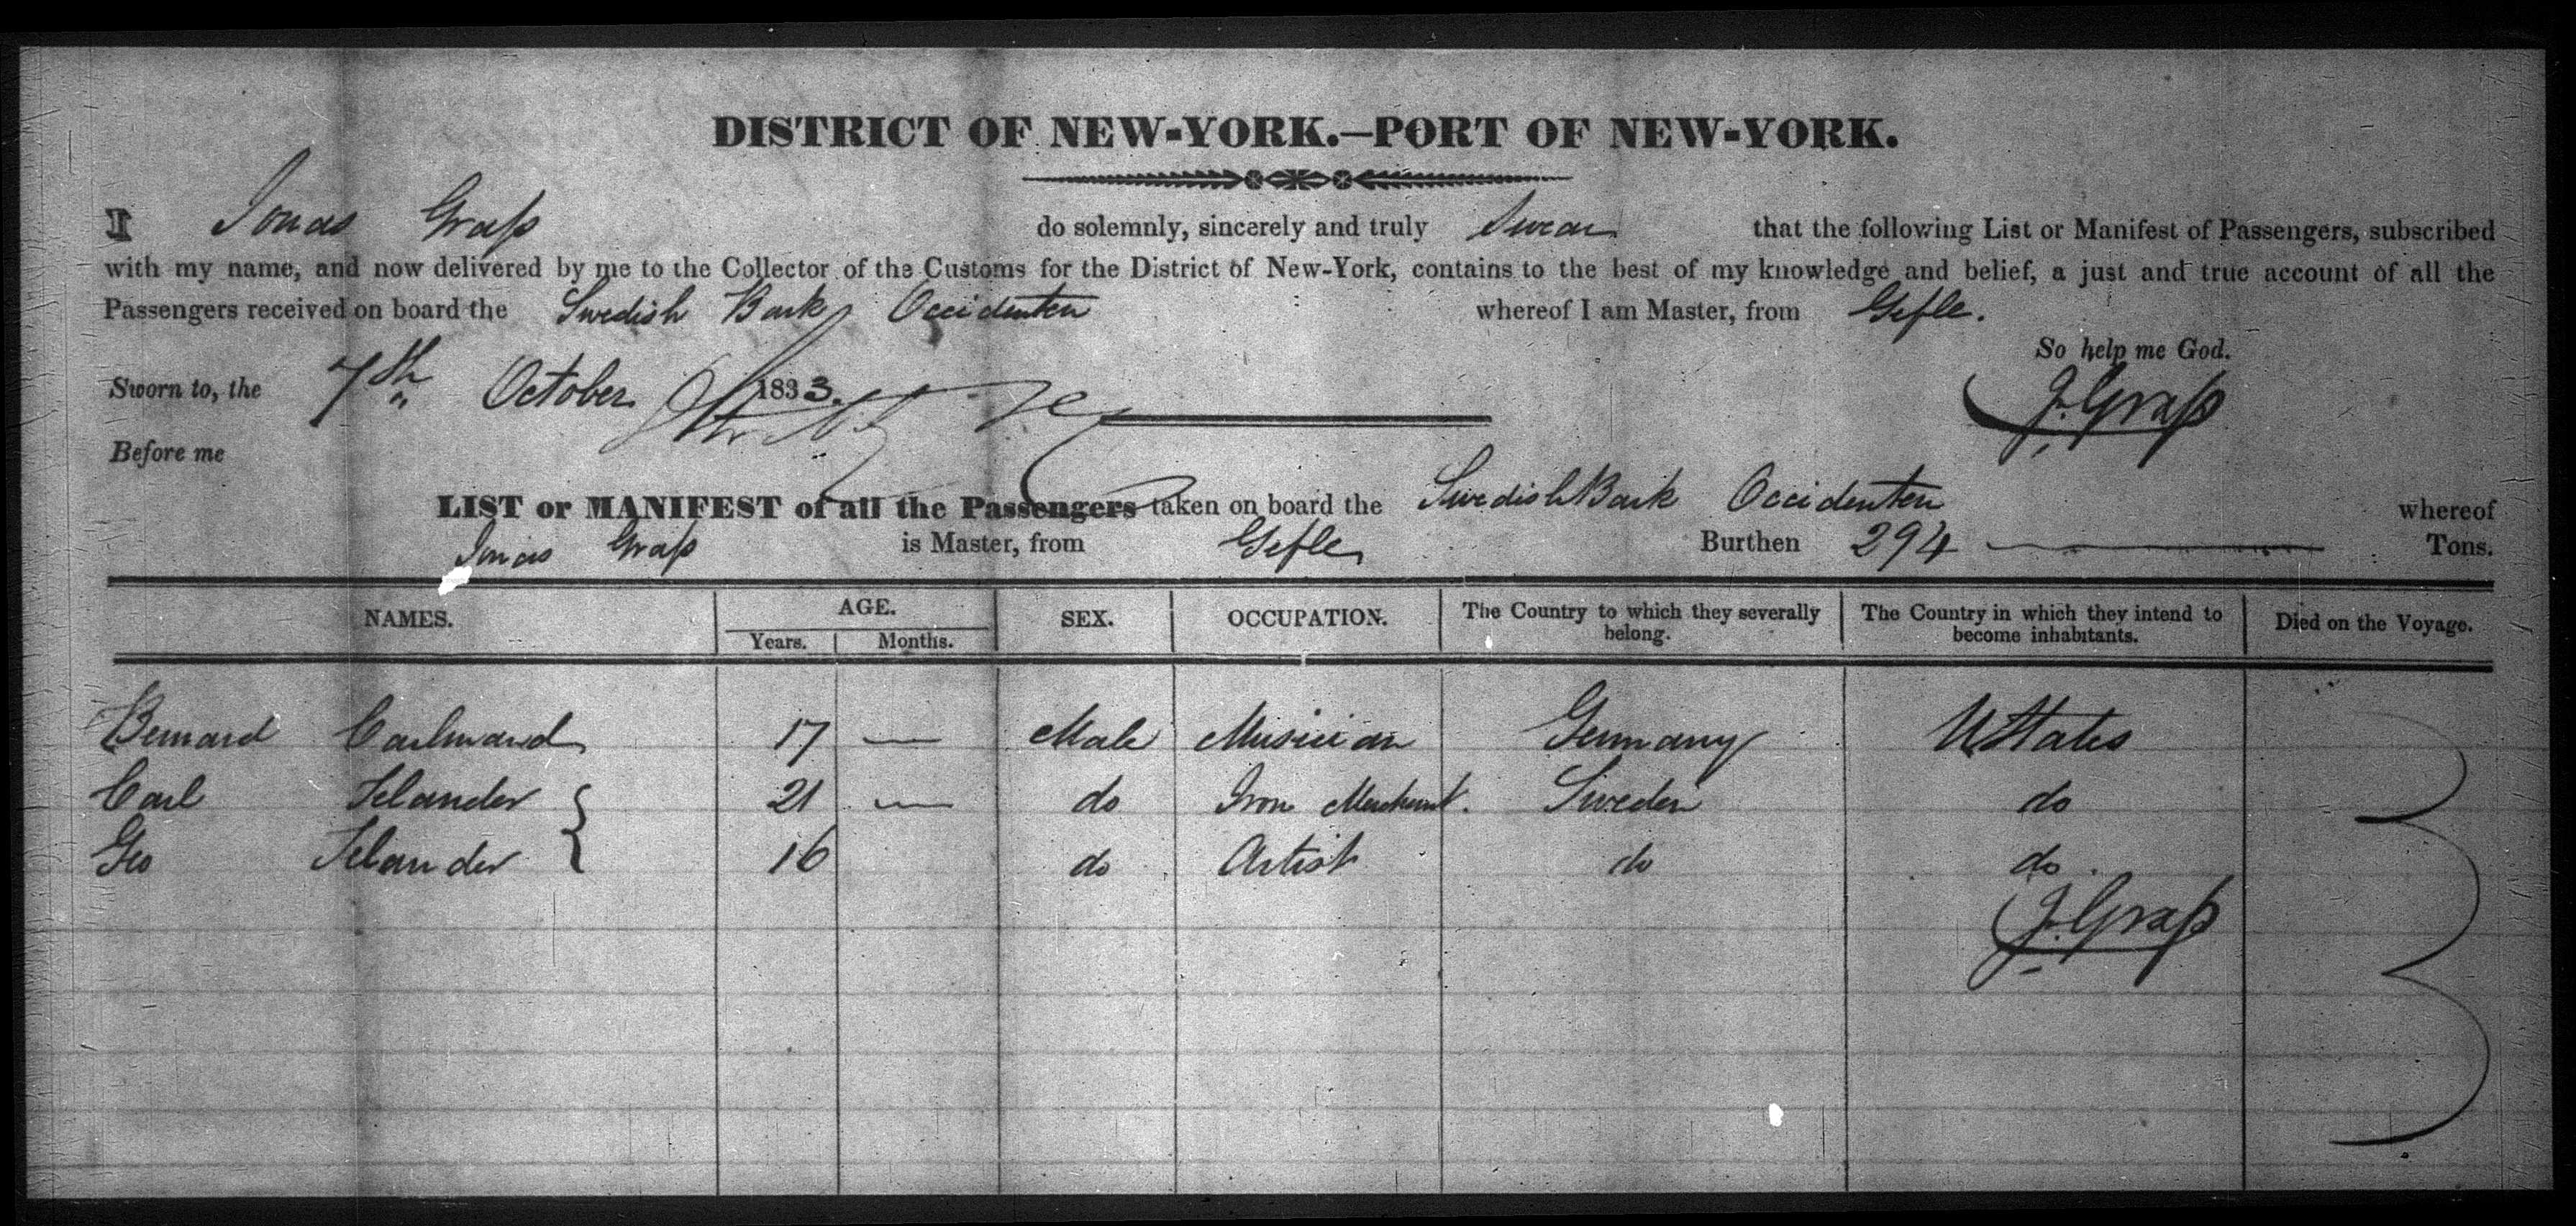 DISTRICT OF NEW-YORK.—PORT OF NEW-YORK.
I Jonas Graſs do solemnly, sincerely and truly Swear that the following List or Manifest of Passengers, subscribed
with my name, and now delivered by me to the Collector of the Customs for the District of New-York, contains to the best of my knowledge and belief, a just and true account of all the
Passengers received on board the Swedish Bark Occidenten whereof I am Master, from Gefle.
So help me God.
Sworn to, the 7th October 1833. J. Graſs
Before me
LIST or MANIFEST of all the Passengers taken on board the Swedish Bark Occidenten whereof
Jonas Graſs is Master, from Gefle Burthen 294 Tons.
NAMES. AGE. SEX. OCCUPATION. The Country to which they severally belong. The Country in which they intend to become inhabitants. Died on the Voyage.
Years. Months.
Bernard 17 — Male Musician Germany U States
Carl 21 — do Iron Merchant. Sweden do
Geo 16 do Artist do do.
J. Graſs